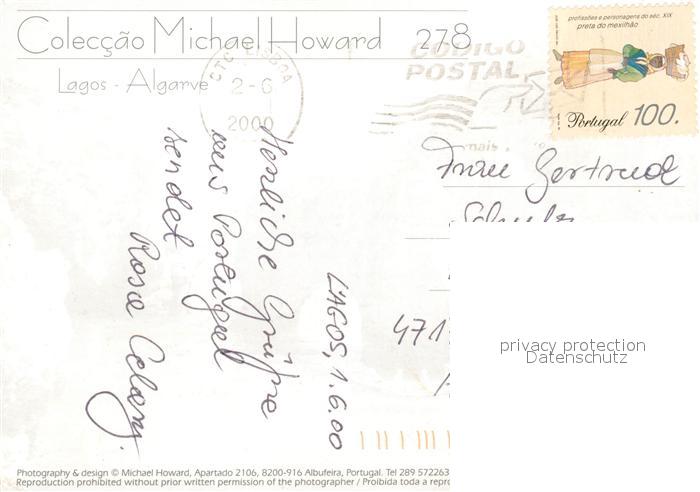 Colecção Michael Howard 278
Lagos - Algarve
CTC LISBOA
2-6
2000
CÓDIGO
POSTAL
mais
profissões e personagens do séc. XIX
preta do mexilhão
Portugal 100.
LAGOS, 1.6.00
Herzliche Grüße
aus Portugal
sendet
Rosa
Frau Gertrud
471
privacy protection
Datenschutz
Photography & design © Michael Howard, Apartado 2106, 8200-916 Albufeira, Portugal. Tel 289 572263
Reproduction prohibited without prior written permission of the photographer / Proibida toda a repro